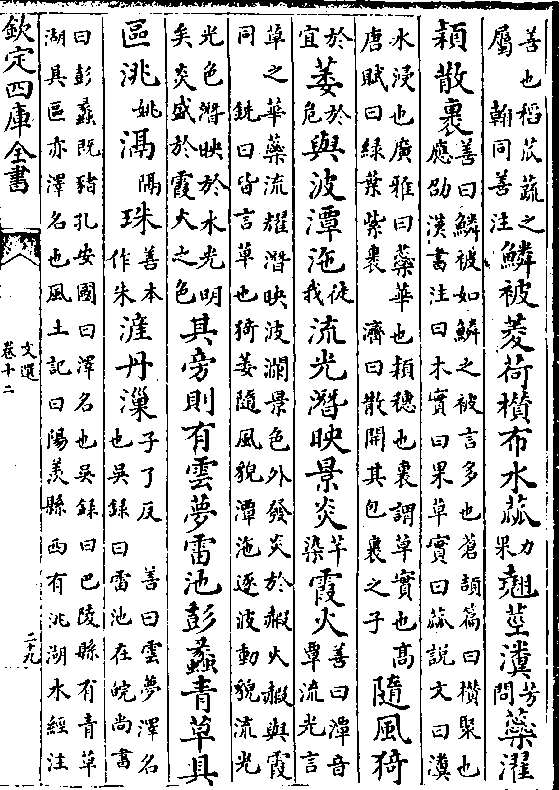 善也稻苽蔬之屬 翰同善注鱗被菱荷攢布水蓏力果翹莖瀵芳問蘂濯
穎散裹善曰鱗被如鱗之被言多也蒼頡篇曰攢聚也應劭漢書注曰木實曰果草實曰蓏說文曰瀵
水浸也廣雅曰蘂華也穎穗也裹謂草實也髙唐賦曰緑葉紫裹 濟曰散開其包裹之子隨風猗
於宜萎於危與波潭沲徒我流光潛映景炎芊染霞火善曰潭音覃流光言
草之華蘂流耀潛映波瀾景色外發炎於赮火赮與霞同 銑曰皆言草也猗萎隨風貌潭沲逐波動貌流光
光色潛映於水光明矣炎盛於霞火之色其旁則有雲夢雷池彭蠡青草具
區洮姚滆隔珠善本作朱滻丹漅子了反 善曰雲夢澤名也吳録曰雷池在皖尚書
曰彭蠡既豬孔安國曰澤名也吳録曰巴陵縣有青草湖具區亦澤名也風土記曰陽羨縣西有洮湖水經注
欽定四庫全書
文選
卷十二
二十九